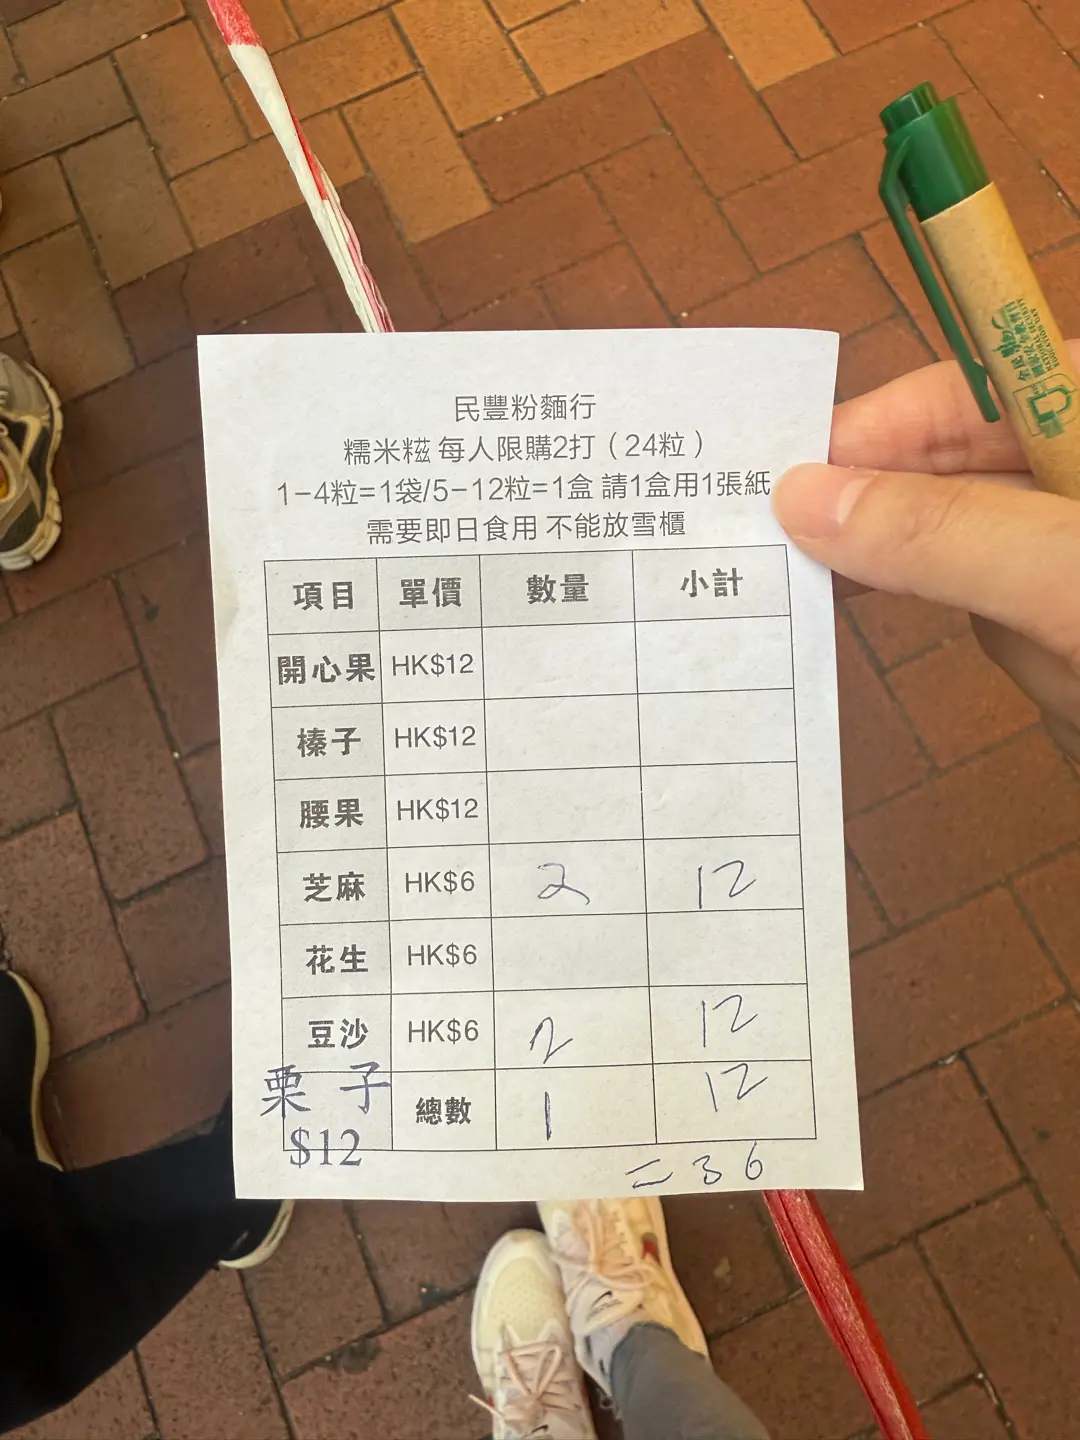 民豐粉麵行
糯米糍 每人限購2打（24粒）
1-4粒=1袋/5-12粒=1盒 請1盒用1張紙
需要即日食用 不能放雪櫃
項目 單價 數量 小計
開心果 HK$12
榛子 HK$12
腰果 HK$12
芝麻 HK$6 2 12
花生 HK$6
豆沙 HK$6 2 12
栗子 總數 1 12
$12
=36
NATIONAL SECURITY
EDUCATION DAY